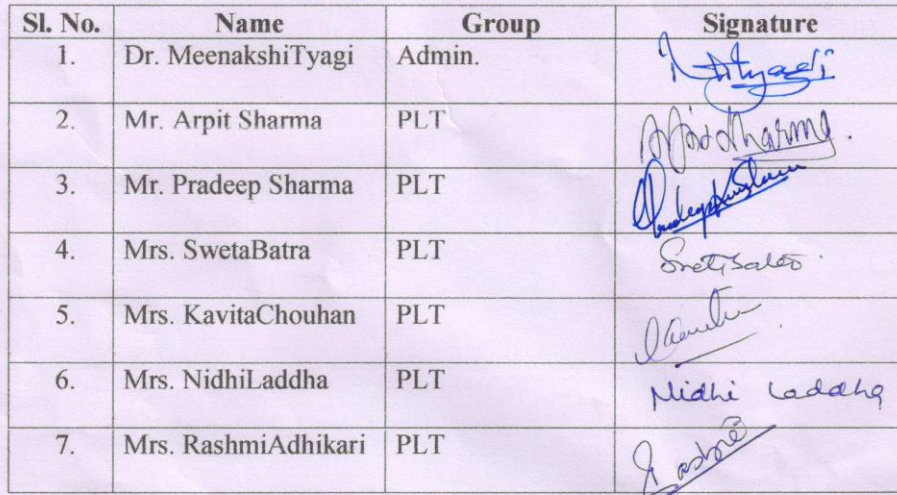 Sl. No. Name Group Signature
1. Dr. MeenakshiTyagi Admin. Mtyagi
2. Mr. Arpit Sharma PLT Arpit Sharma.
3. Mr. Pradeep Sharma PLT
4. Mrs. SwetaBatra PLT
5. Mrs. KavitaChouhan PLT Kavita
6. Mrs. NidhiLaddha PLT Nidhi Laddha
7. Mrs. RashmiAdhikari PLT Rashmi